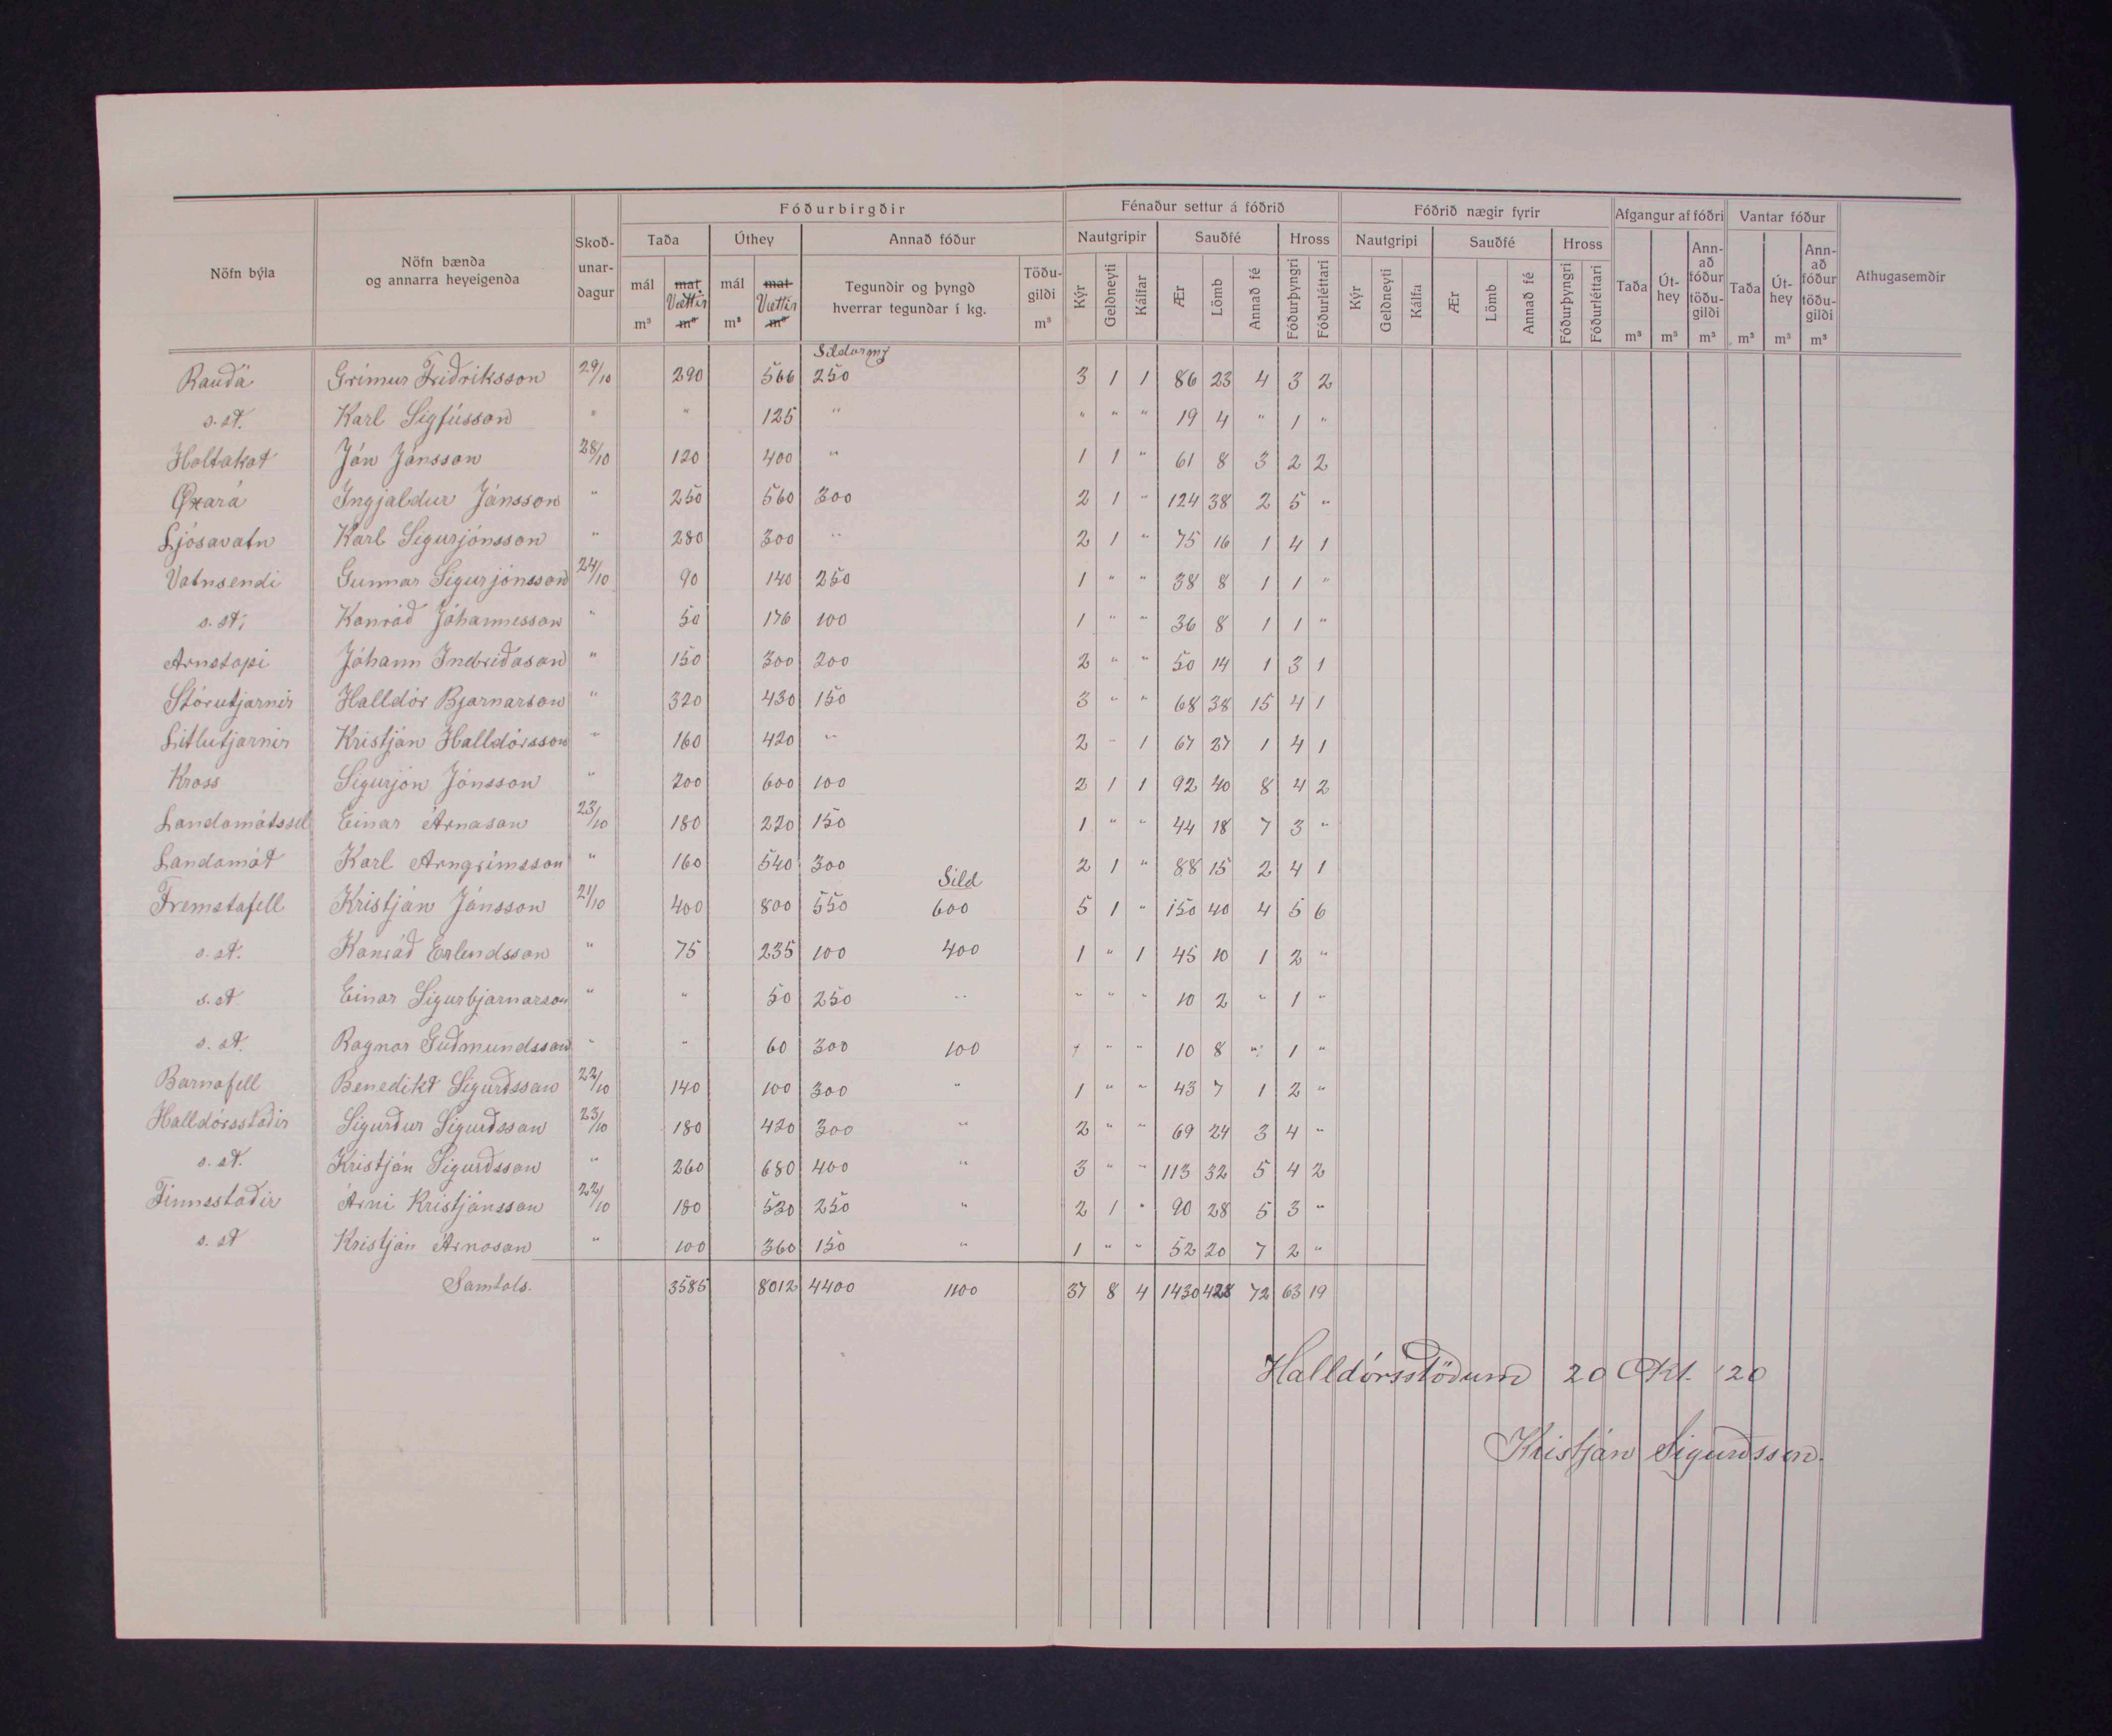 Fóðurbirgðir Fénaður settur á fóðrið Fóðrið nægir fyrir Afgangur af fóðri Vantar fóður
Nöfn býla Nöfn bænda og annarra heyeigenda Skoð-unar-dagur Taða Úthey Annað fóður Nautgripir Sauðfé Hross Nautgripi Sauðfé Hross Taða Út-hey Ann-að fóður töðu-gildi Taða Út-hey Ann-að fóður töðu-gildi Athugasemdir
mál mat. Vættir mál mat Vættir Tegundir og þyngd hverrar tegundar í kg. Töðu-gildi Kýr Geldneyti Kálfar Ær Lömb Annað fé Fóðurþyngri Fóðurléttari Kýr Geldneyti Kálfa Ær Lömb Annað fé Fóðurþyngri Fóðurléttari
m³ m³ m³ m³ m³ m³ m³ m³ m³ m³ m³
Síldarmj
Rauðá Grímur Friðriksson 29/10 290 566 250 3 1 1 86 23 4 3 2
s. st. Karl Sigfússon " " 125 " " " " 19 4 " 1 "
Holtakot Jón Jónsson 28/10 120 400 " 1 1 " 61 8 3 2 2
Øxará Ingjaldur Jónsson " 250 560 300 2 1 " 124 38 2 5 "
Ljósavatn Karl Sigurjónsson " 280 300 " 2 1 " 75 16 1 4 1
Vatnsendi Gunnar Sigurjónsson 24/10 90 140 250 1 " " 38 8 1 1 "
s. st; Konráð Jóhannesson " 50 176 100 1 " " 36 8 1 1 "
Arnstapi Jóhann Indriðason " 150 300 200 2 " " 50 14 1 3 1
Stórutjarnir Halldór Bjarnarson " 320 430 150 3 " " 68 38 15 4 1
Litlutjarnir Kristján Halldórsson " 160 420 " 2 " 1 67 27 1 4 1
Kross Sigurjón Jónsson " 200 600 100 2 1 1 92 40 8 4 2
Landamótssel Einar Árnason 23/10 180 220 150 1 " " 44 18 7 3 "
Landamót Karl Arngrímsson " 160 540 300 2 1 " 88 15 2 4 1
Síld
Fremstafell Kristján Jónsson 21/10 400 800 550 600 5 1 " 150 40 4 5 6
s. st. Konráð Erlendsson " 75 235 100 400 1 " 1 45 10 1 2 "
s. st. Einar Sigurbjarnarson " " 50 250 " " " " 10 2 " 1 "
s. st. Ragnar Guðmundsson " " 60 300 100 " " " 10 8 " 1 "
Barnafell Benedikt Sigurðsson 22/10 140 100 300 " 1 " " 43 7 1 2 "
Halldórsstaðir Sigurður Sigurðsson 23/10 180 420 300 " 2 " " 69 24 3 4 "
s. st. Kristján Sigurðsson " 260 680 400 " 3 " " 113 32 5 4 2
Finnsstaðir Árni Kristjánsson 22/10 180 530 250 " 2 1 " 90 28 5 3 "
s. st Kristján Árnason " 100 360 150 " 1 " " 52 20 7 2 "
Samtals. 3585 8012 4400 1100 37 8 4 1430 428 72 63 19
Halldórsstöðum 20 Okt. '20
Kristján Sigurðsson.